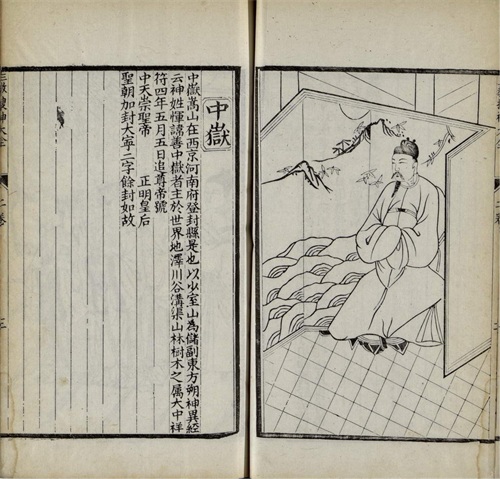 中嶽
中嶽嵩山在西京河南府登封縣是也以少室山為儲副東方朔神異經
云神姓惲諱善中嶽者主於世界地澤川谷溝渠山林樹木之屬大中祥
符四年五月五日追尊帝號
中天崇聖帝 正明皇后
聖朝加封大寧二字餘封如故
二卷
三